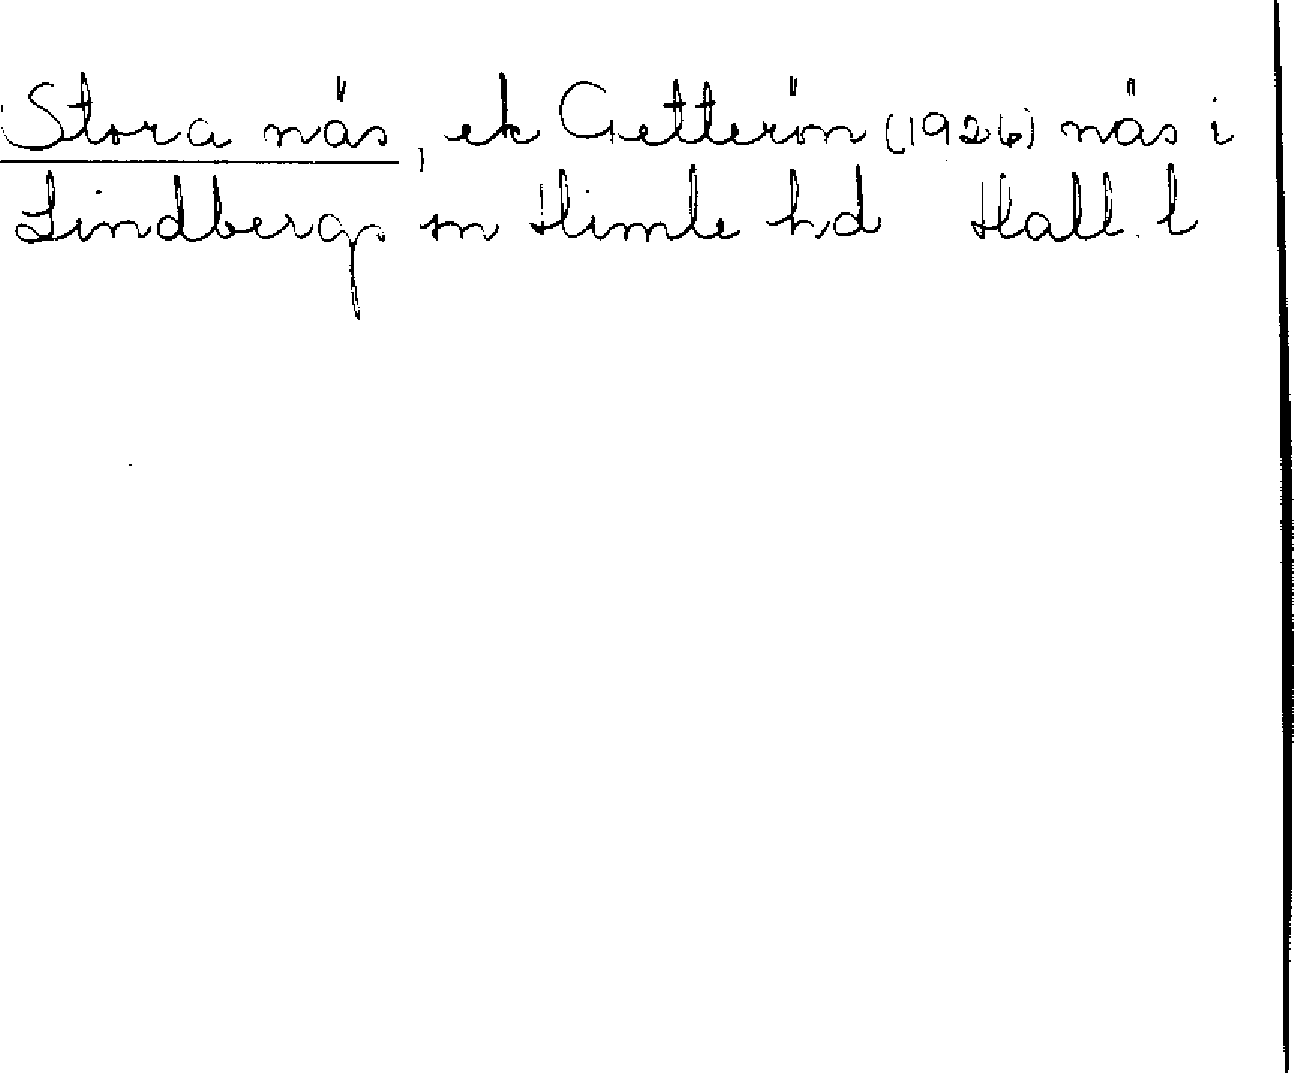 Stora näs, ek Getterön (1926) näs i
Lindbergs sn Himle hd Hall. l